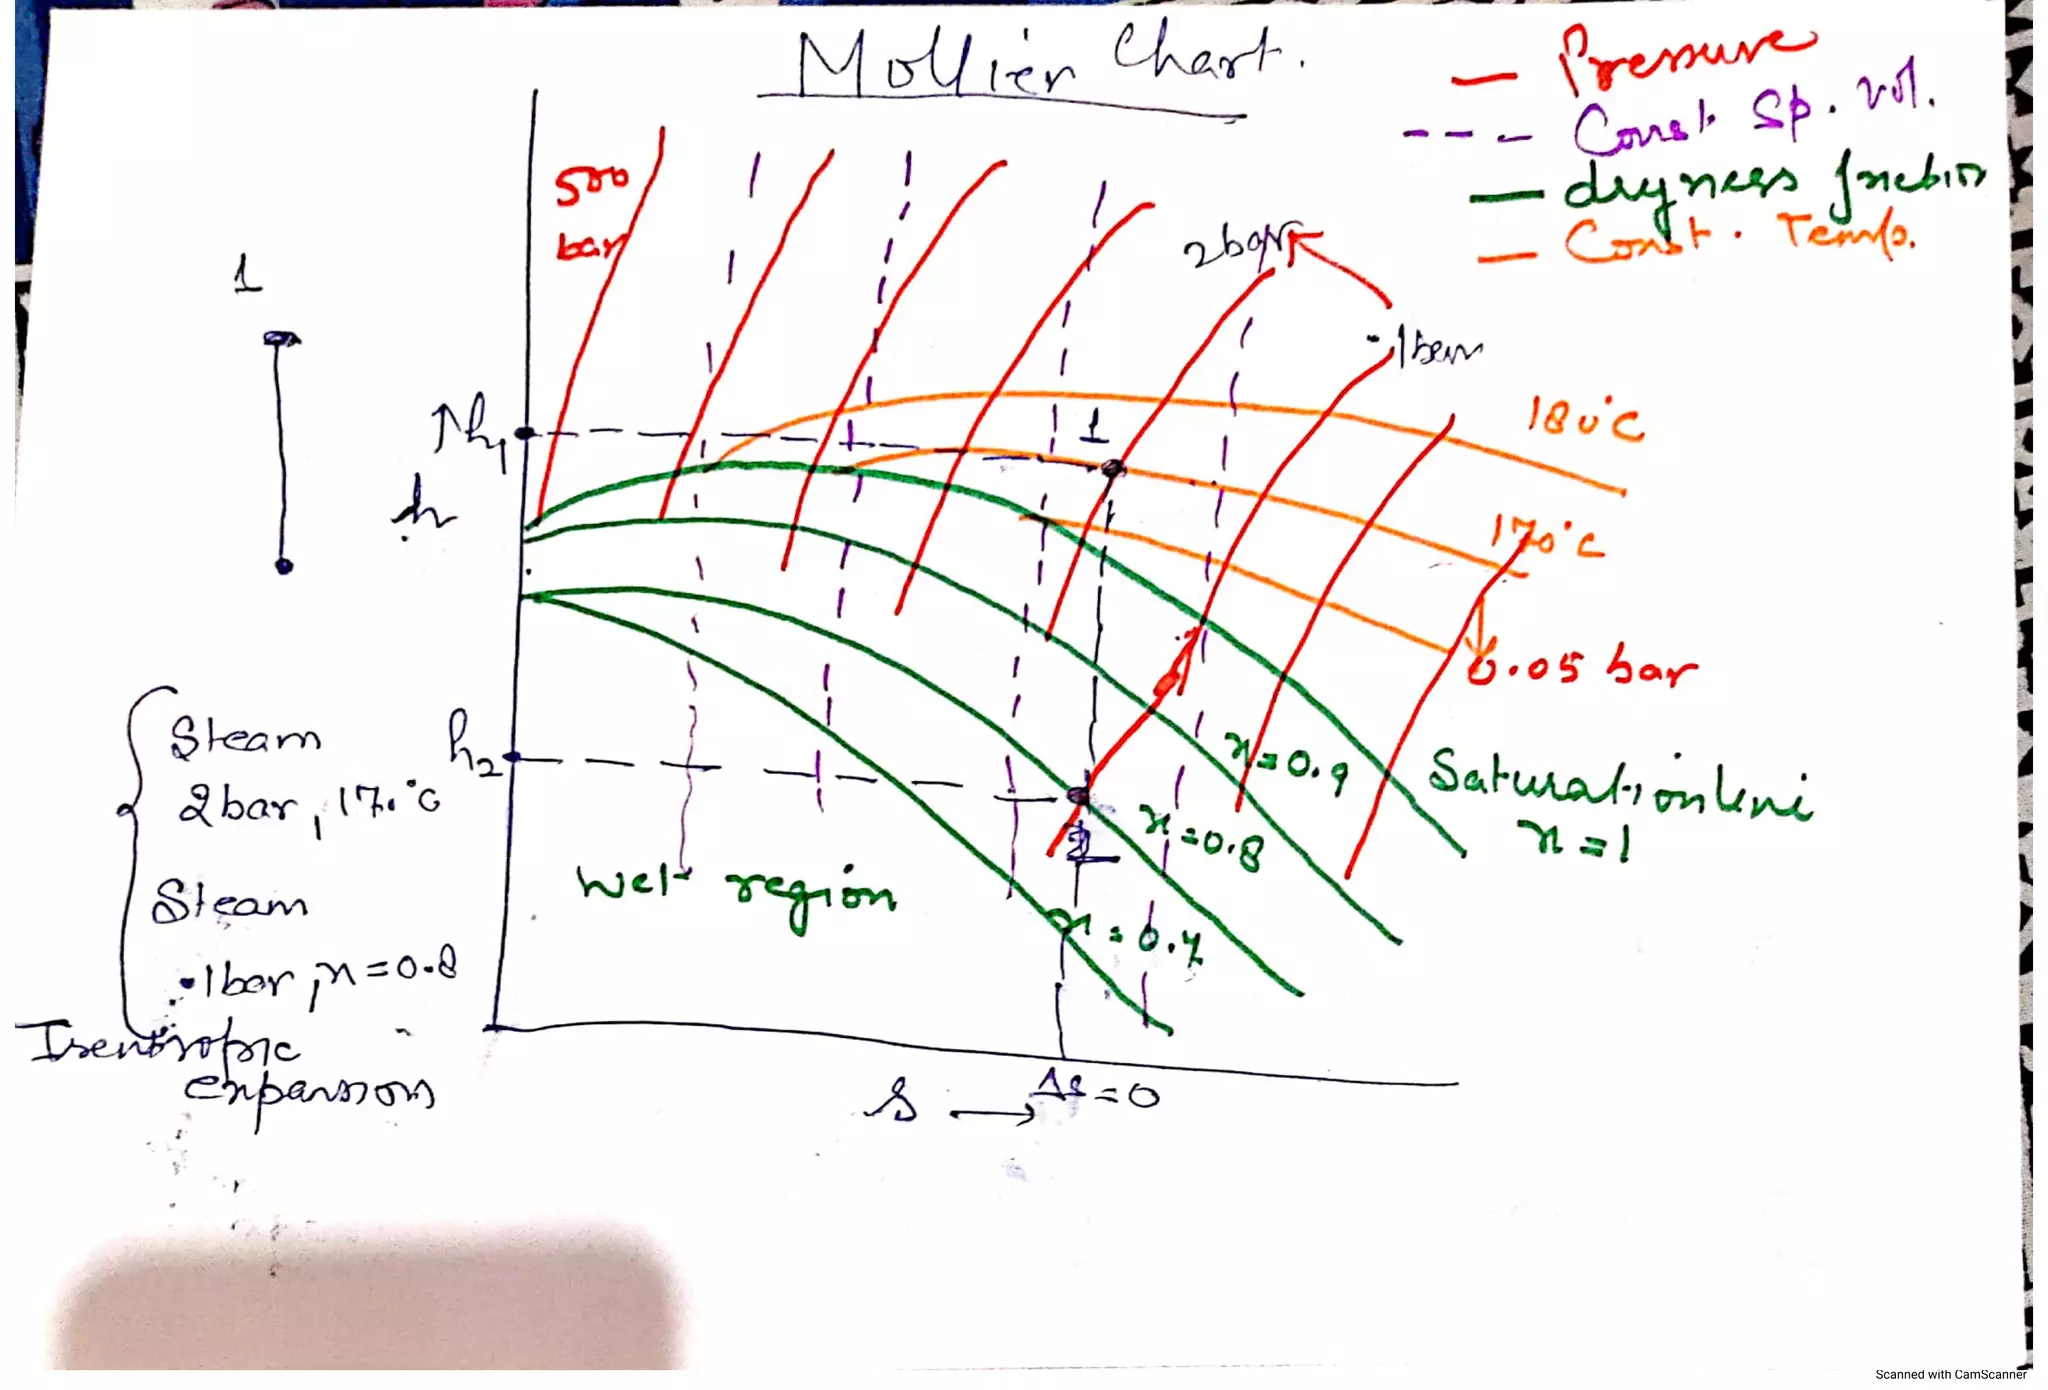 Mollier Chart.
— Pressure
--- Const. Sp. vol.
— dryness fraction
— Const. Temp.
500
bar
2bar
.1bar
1
↑h1
1
180°C
h
170°C
0.05 bar
Steam
2bar, 170°C
h2
x=0.9
Saturation line
x=1
x=0.8
2
Wet region
x=0.7
Steam
.1bar, x=0.8
Isentropic
expansion
s → Δs=0
Scanned with CamScanner